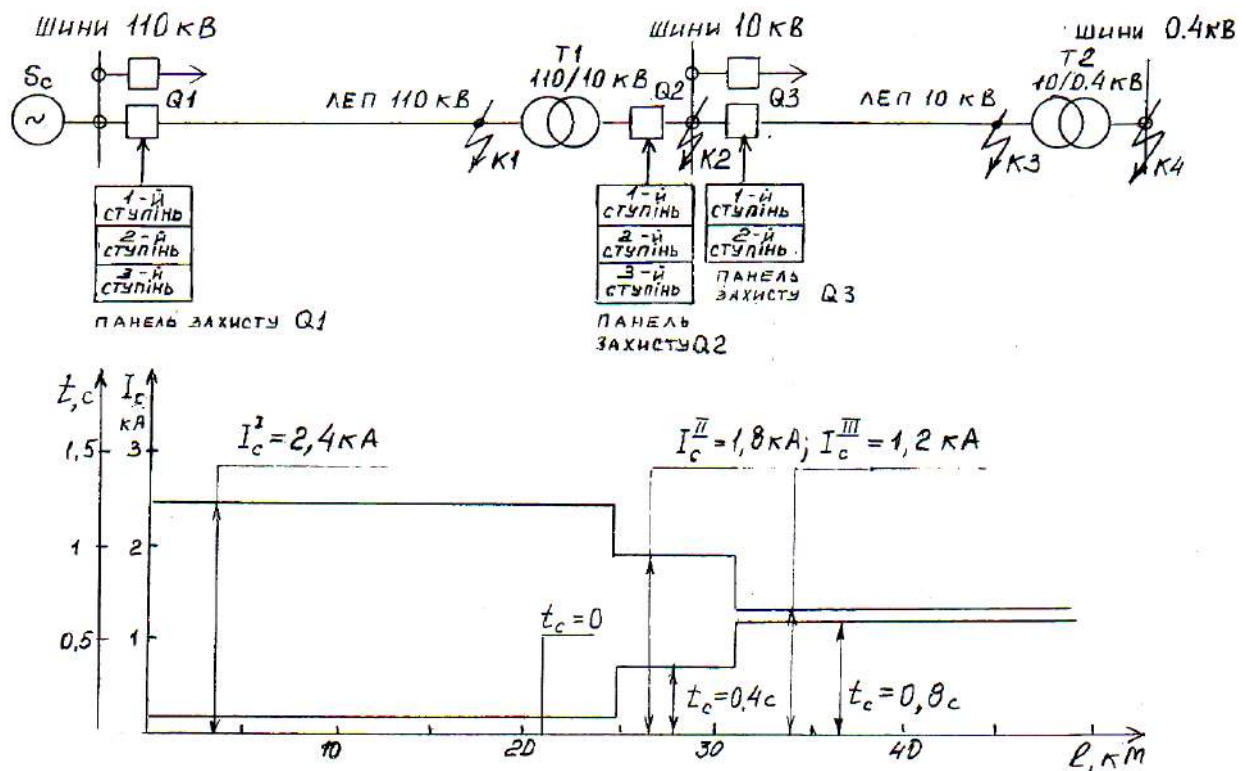 ШИНИ 110 кВ
ШИНИ 10 кВ
ШИНИ 0.4 кВ
Sc
~
Q1
ЛЕП 110 кВ
T1
110/10 кВ
Q2
Q3
ЛЕП 10 кВ
T2
10/0.4 кВ
К1
К2
К3
К4
1-й
ступінь
2-й
ступінь
3-й
ступінь
ПАНЕЛЬ ЗАХИСТУ Q1
1-й
ступінь
2-й
ступінь
3-й
ступінь
ПАНЕЛЬ
ЗАХИСТУ Q2
1-й
ступінь
2-й
ступінь
ПАНЕЛЬ
ЗАХИСТУ Q3
t,c
Ic
кА
Ic^I = 2,4 кА
Ic^II = 1,8 кА; Ic^III = 1,2 кА
1,5
3
1
2
0,5
1
tc = 0
tc = 0,4 c
tc = 0,8 c
10
20
30
40
ℓ, км